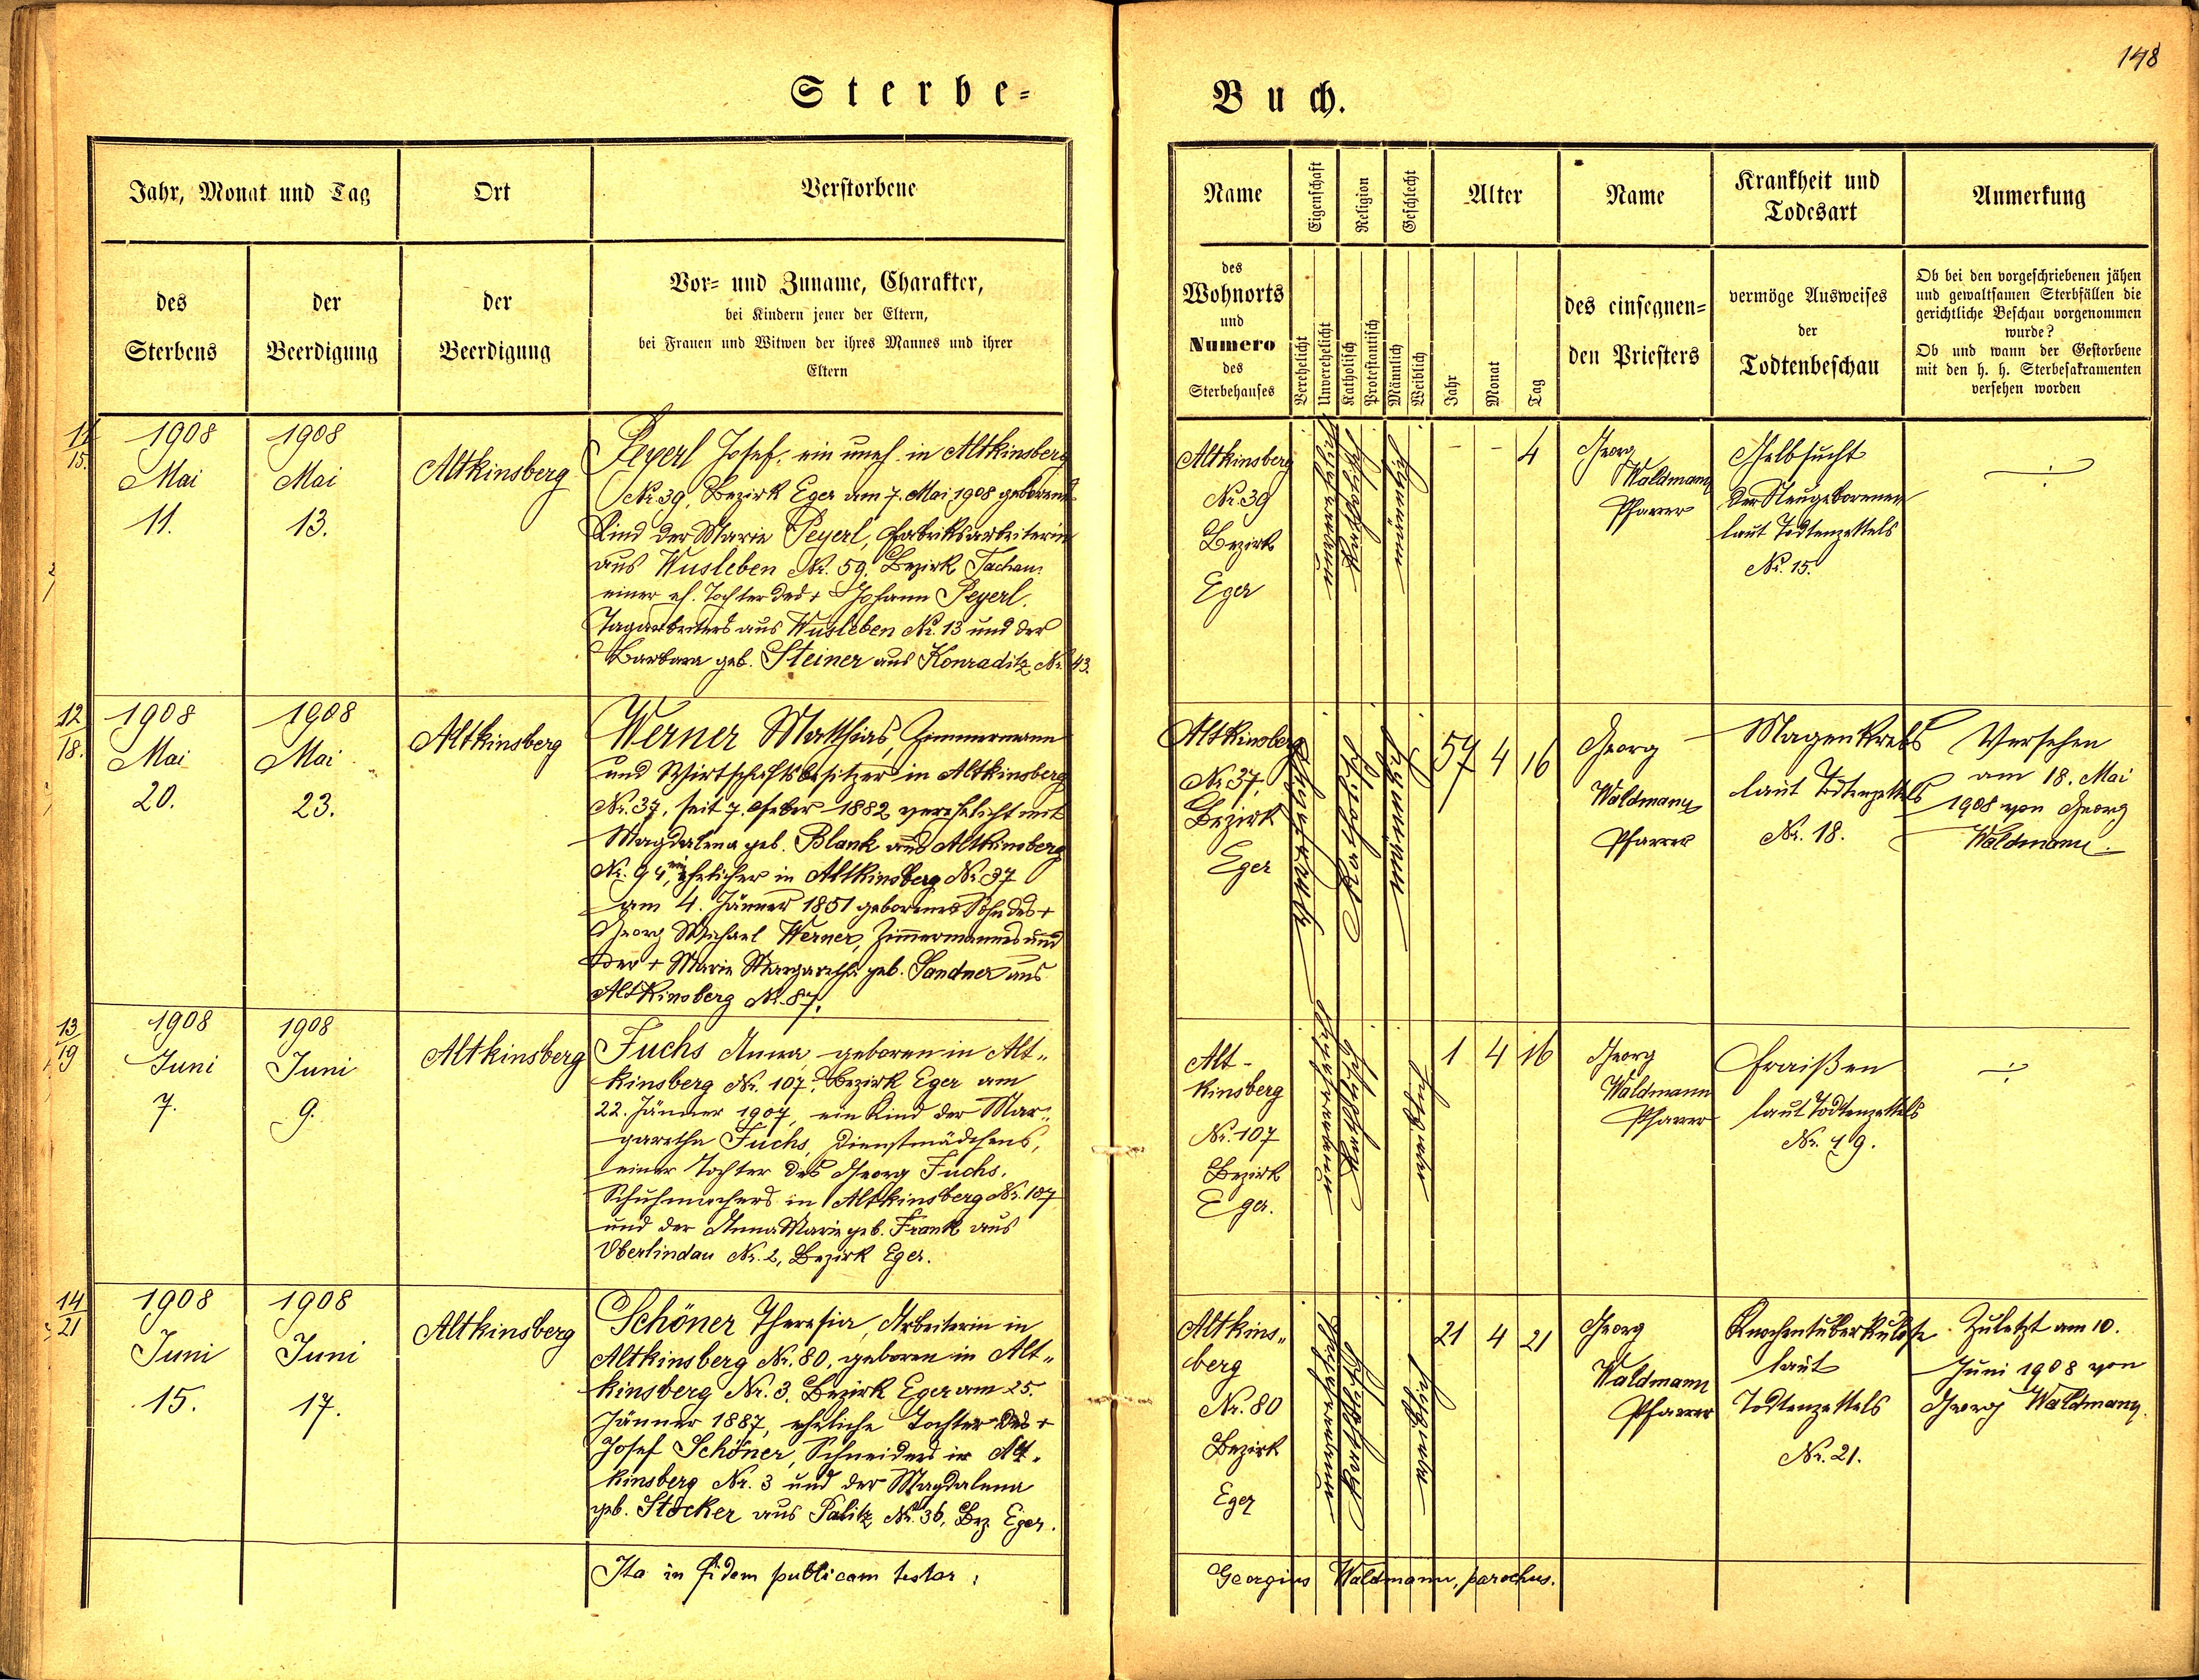 148
Sterbe-
Buch.
Jahr, Monat und Tag
Ort
Verstorbene
des Sterbens
der Beerdigung
der Beerdigung
Vor- und Zuname, Charakter,
bei Kindern jener der Eltern,
bei Frauen und Witwen der ihres Mannes und ihrer
Eltern
Name
Eigenschaft
Religion
Geschlecht
Alter
Name
Krankheit und
Todesart
Anmerkung
des
Wohnorts
und
Numero
des
Sterbehauses
Verehelicht
Unverehelicht
Katholisch
Protestantisch
Männlich
Weiblich
Jahr
Monat
Tag
des einsegnen-
den Priesters
vermöge Ausweises
der
Todtenbeschau
Ob bei den vorgeschriebenen jähen
und gewaltsamen Sterbfällen die
gerichtliche Beschau vorgenommen
wurde?
Ob und wann der Gestorbene
mit den h. h. Sterbesakramenten
versehen worden
11
15.
1908
Mai
11.
1908
Mai
13.
Altkinsberg
Peyerl Josef, ein uneh. in Altkinsberg
Nr. 39, Bezirk Eger am 7. Mai 1908 geborenes
Kind der Marie Peyerl, Fabriksarbeiterin
aus Wusleben Nr. 59, Bezirk Tachau,
einer eh. Tochter des + Johann Peyerl,
Tagarbeiters aus Wusleben Nr. 13 und der
Barbara geb. Steiner aus Konraditz Nr. 43.
Altkinsberg
Nr. 39
Bezirk
Eger
unverehelicht
katholisch
männlich
- - 4
Georg
Waldmann
Pfarrer
Gelbsucht
der Neugeborenen
laut Todtenzettels
Nr. 15.
12
18.
1908
Mai
20.
1908
Mai
23.
Altkinsberg
Werner Matthias, Zimmermann
und Wirtschaftsbesitzer in Altkinsberg
Nr. 37, seit 7. Feber 1882 verehelicht mit
Magdalena geb. Blank aus Altkinsberg
Nr. 94, ein ehelicher in Altkinsberg Nr. 37
am 4. Jänner 1851 geborener Sohn des +
Georg Michael Werner, Zimmermanns und
der + Marie Margaretha geb. Sandner aus
Altkinsberg Nr. 87.
Altkinsberg
Nr. 37,
Bezirk
Eger
verehelicht
katholisch
männlich
57 4 16
Georg
Waldmann
Pfarrer
Magenkrebs
laut Todtenzettels
Nr. 18.
Versehen
am 18. Mai
1908 von Georg
Waldmann.
13
19
1908
Juni
7.
1908
Juni
9.
Altkinsberg
Fuchs Anna, geboren in Alt-
kinsberg Nr. 107, Bezirk Eger am
22. Jänner 1907, ein Kind der Mar-
garetha Fuchs, Dienstmädchens,
einer Tochter des Georg Fuchs,
Schuhmachers in Altkinsberg Nr. 107
und der Anna Marie geb. Frank aus
Oberlindau Nr. 2, Bezirk Eger.
Alt-
kinsberg
Nr. 107
Bezirk
Eger.
unverehelicht
katholisch
weiblich
1 4 16
Georg
Waldmann
Pfarrer
Fraißen
laut Todtenzettels
Nr. 19.
14
21
1908
Juni
15.
1908
Juni
17.
Altkinsberg
Schöner Theresia, Arbeiterin in
Altkinsberg Nr. 80, geboren in Alt-
kinsberg Nr. 3, Bezirk Eger am 25.
Jänner 1887, eheliche Tochter des +
Josef Schöner, Schneiders in Alt-
kinsberg Nr. 3 und der Magdalena
geb. Stöcker aus Palitz Nr. 36, Bez. Eger.
Altkins-
berg
Nr. 80
Bezirk
Eger
unverehelicht
katholisch
weiblich
21 4 21
Georg
Waldmann
Pfarrer
Knochentuberkulose
laut
Todtenzettels
Nr. 21.
Zuletzt am 10.
Juni 1908 von
Georg Waldmann.
Ita in fidem publicam testor:
Georgius Waldmann, parochus.